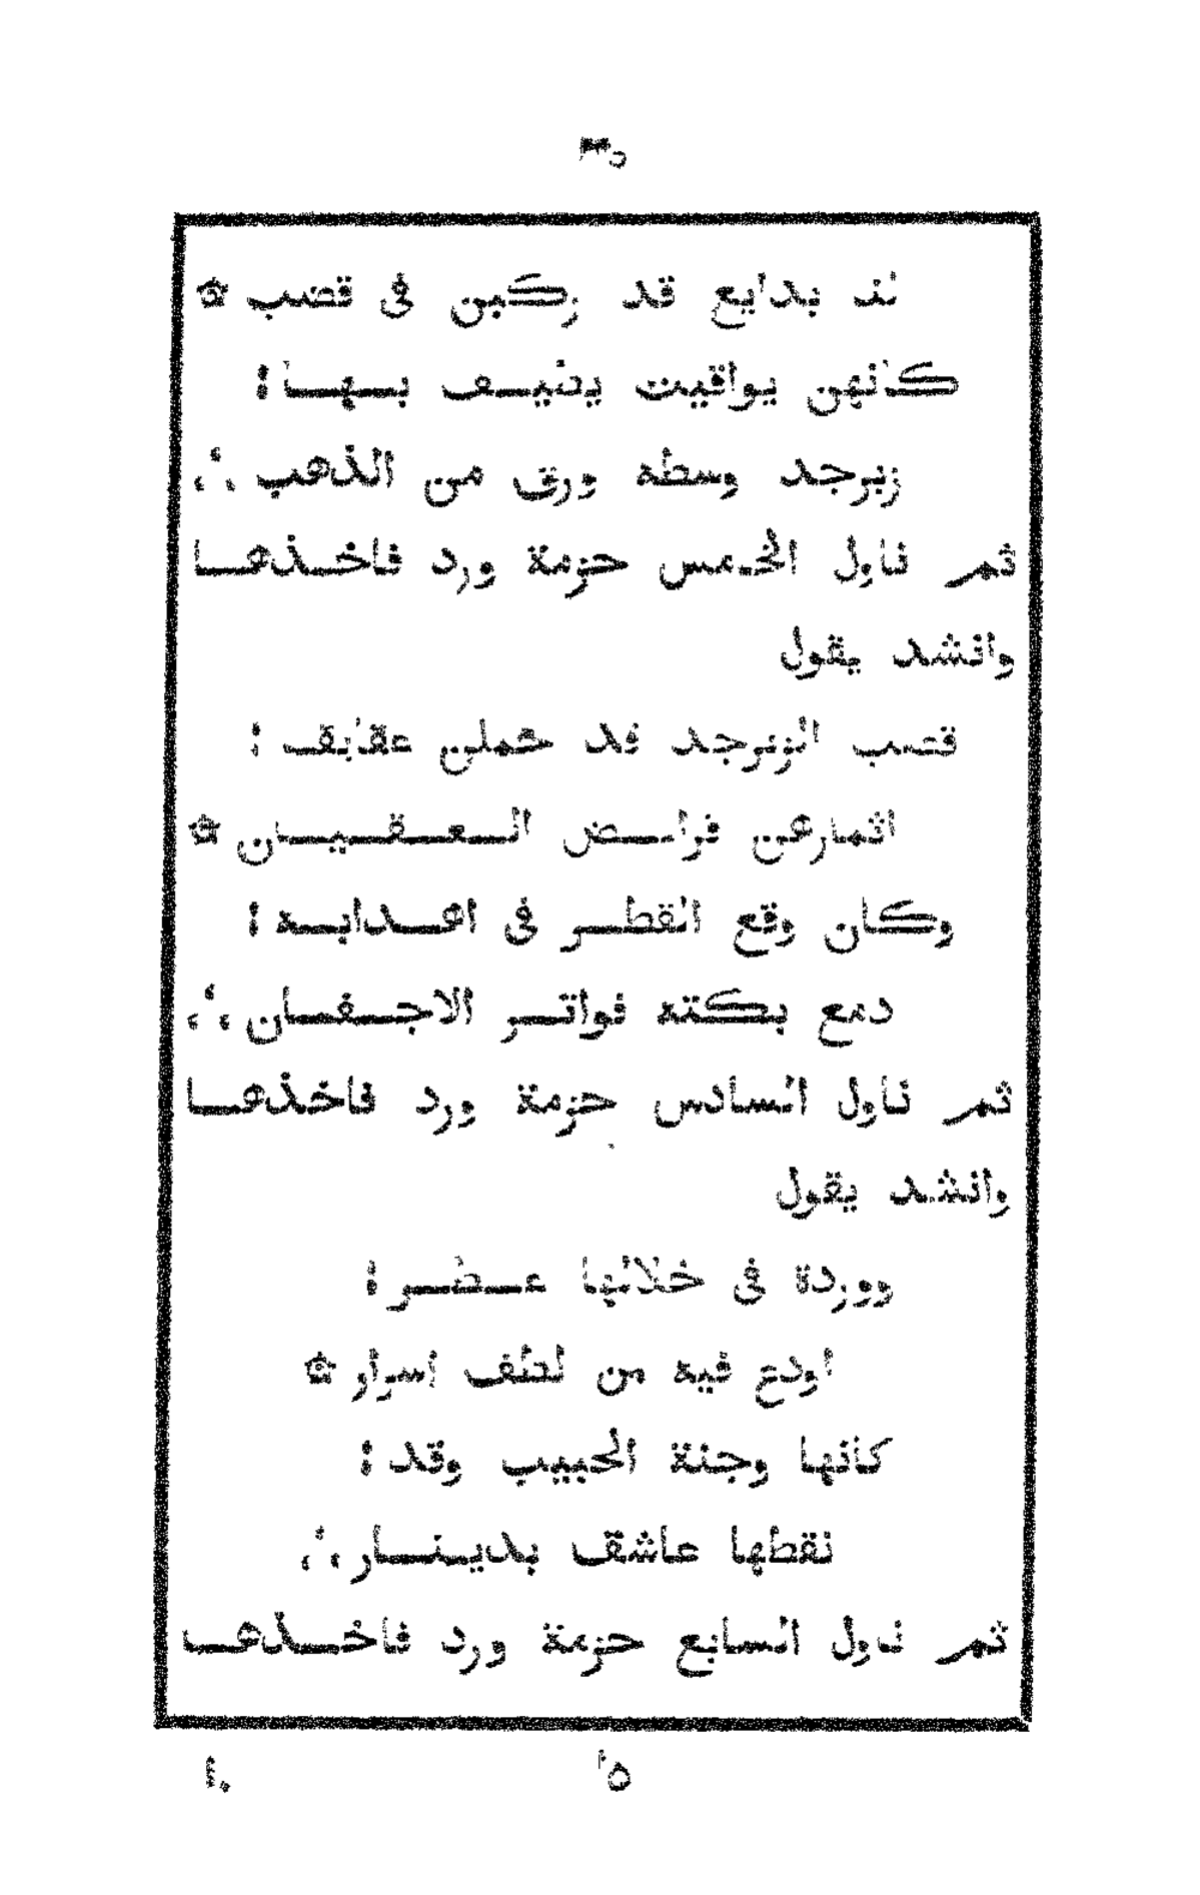 ٣٥
بدايع قد ركبن فى قضب ۞
كانهن يواقيت يضيف بها :
زبرجد وسطه ورق من الذهب ؞
ثم ناول الخمس حزمة ورد فاخذها
وانشد يقول
قضب الزبرجد قد حملن عقايق :
اثمارعن قراض العقيان ۞
وكان وقع القطر فى اهدابه :
دمع بكته فواتر الاجفان ؞
ثم ناول السادس حزمة ورد فاخذها
وانشد يقول
ووردة فى خلالها عطر :
اودع فيه من لطف اسرار ۞
كانها وجنة الحبيب وقد :
نقطها عاشق بدينار ؞
ثم ناول السابع حزمة ورد فاخذها